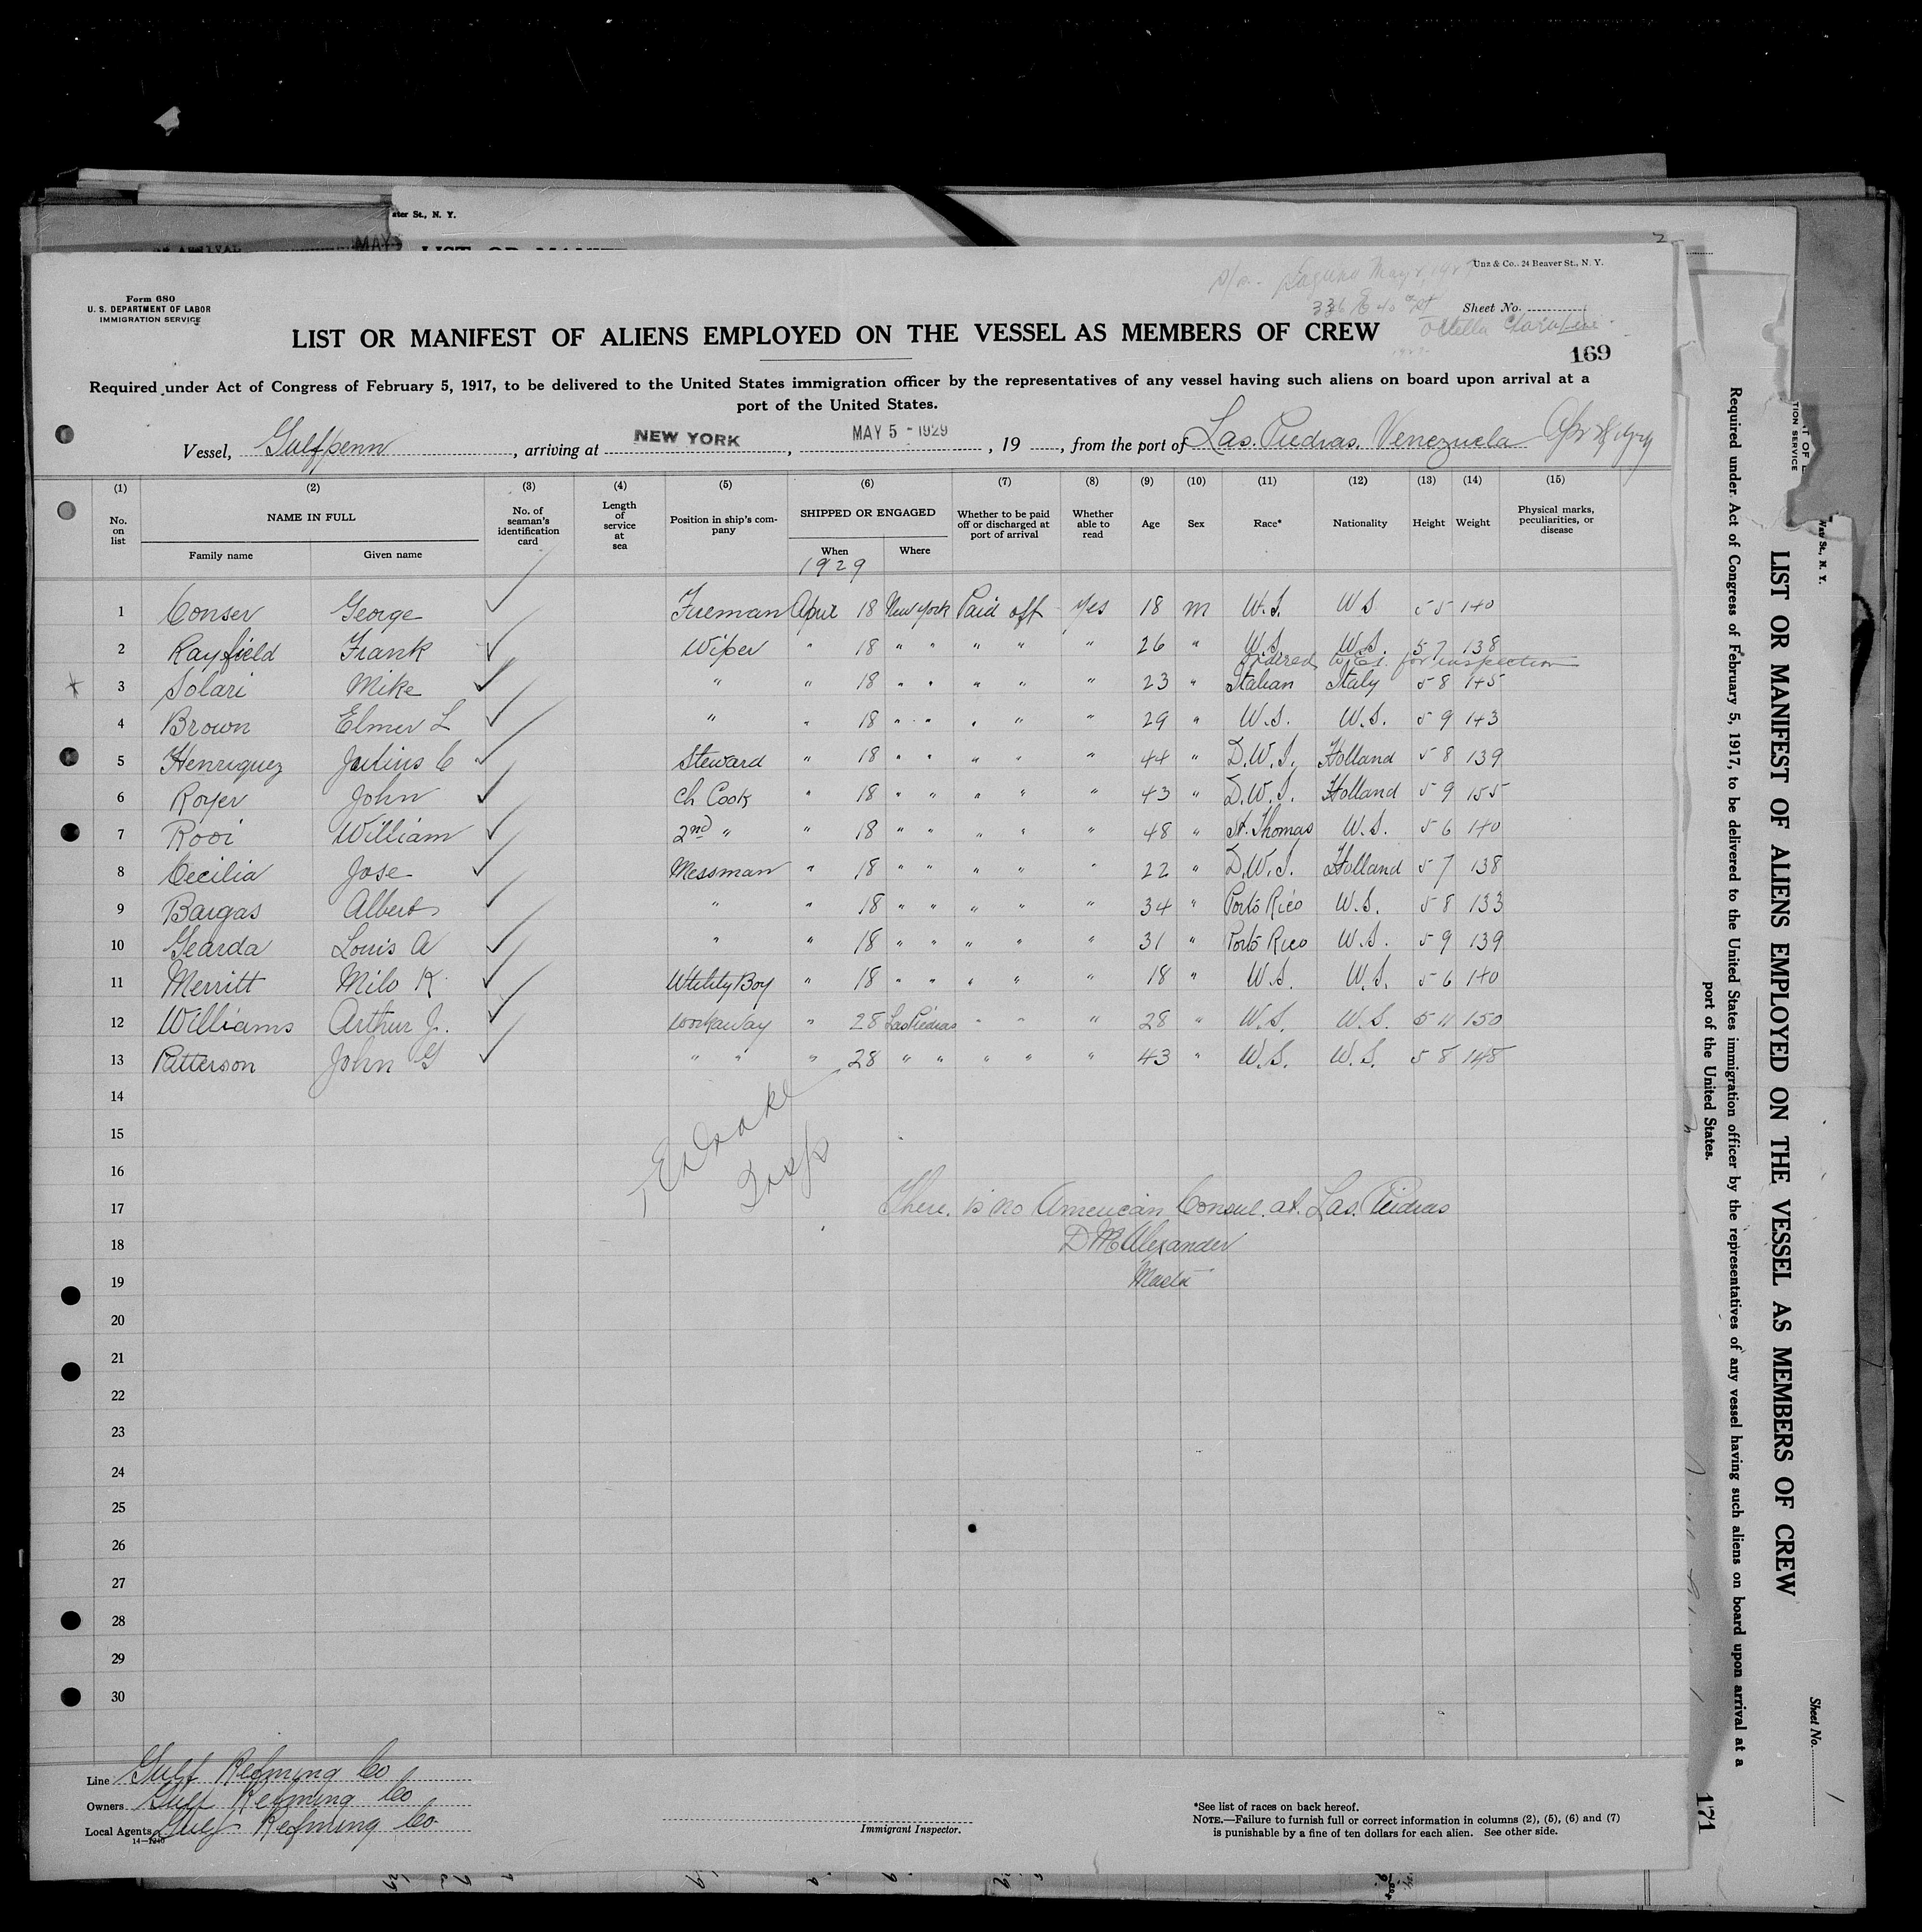 ater St., N. Y.
MAY
Unz & Co., 24 Beaver St., N. Y.
Form 680
U. S. DEPARTMENT OF LABOR
IMMIGRATION SERVICE
336 E 40 St
Sheet No.
LIST OR MANIFEST OF ALIENS EMPLOYED ON THE VESSEL AS MEMBERS OF CREW
169
Required under Act of Congress of February 5, 1917, to be delivered to the United States immigration officer by the representatives of any vessel having such aliens on board upon arrival at a
port of the United States.
Vessel, Gulfpenn, arriving at NEW YORK, MAY 5 - 1929, 19, from the port of Las. Piedras. Venezuela
(1) (2) (3) (4) (5) (6) (7) (8) (9) (10) (11) (12) (13) (14) (15)
No. on list NAME IN FULL No. of seaman's identification card Length of service at sea Position in ship's company SHIPPED OR ENGAGED Whether to be paid off or discharged at port of arrival Whether able to read Age Sex Race* Nationality Height Weight Physical marks, peculiarities, or disease
Family name Given name When Where
1929
1 Conser George Fireman April 18 New York Paid off Yes 18 m U.S. U.S. 5 5 140
2 Rayfield Frank Wiper " 18 " " " " " 26 " U.S. U.S. 5 7 138
Ordered to E.I. for inspection
3 Solari Mike " " 18 " " " " " 23 " Italian Italy 5 8 145
4 Brown Elmer L " " 18 " " " " " 29 " U.S. U.S. 5 9 143
5 Henriquez Julius C Steward " 18 " " " " " 44 " D.W.I. Holland 5 8 139
6 Royer John Ch Cook " 18 " " " " " 43 " D.W.I. Holland 5 9 155
7 Rooi William 2nd " " 18 " " " " " 48 " St. Thomas U.S. 5 6 140
8 Cecilia Jose Messman " 18 " " " " " 22 " D.W.I. Holland 5 7 138
9 Bargas Albert " " 18 " " " " " 34 " Porto Rico U.S. 5 8 133
10 Gearda Louis A " " 18 " " " " " 31 " Porto Rico U.S. 5 9 139
11 Merritt Milo K. Utility Boy " 18 " " " " " 18 " U.S. U.S. 5 6 140
12 Williams Arthur J. Workaway " 28 Las Piedras " " " 28 " U.S. U.S. 5 11 150
13 Patterson John G " " " 28 " " " " " 43 " U.S. U.S. 5 8 148
14
15
16
17 There is no American Consul at Las. Piedras
18 D M Alexander
19 Master
20
21
22
23
24
25
26
27
28
29
30
Line Gulf Refining Co
Owners Gulf Refining Co
Local Agents Gulf Refining Co.
14-1240
Immigrant Inspector.
*See list of races on back hereof.
NOTE.—Failure to furnish full or correct information in columns (2), (5), (6) and (7)
is punishable by a fine of ten dollars for each alien. See other side.
LIST OR MANIFEST OF ALIENS EMPLOYED ON THE VESSEL AS MEMBERS OF CREW
Required under Act of Congress of February 5, 1917, to be delivered to the United States immigration officer by the representatives of any vessel having such aliens on board upon arrival at a
port of the United States.
Sheet No.
171